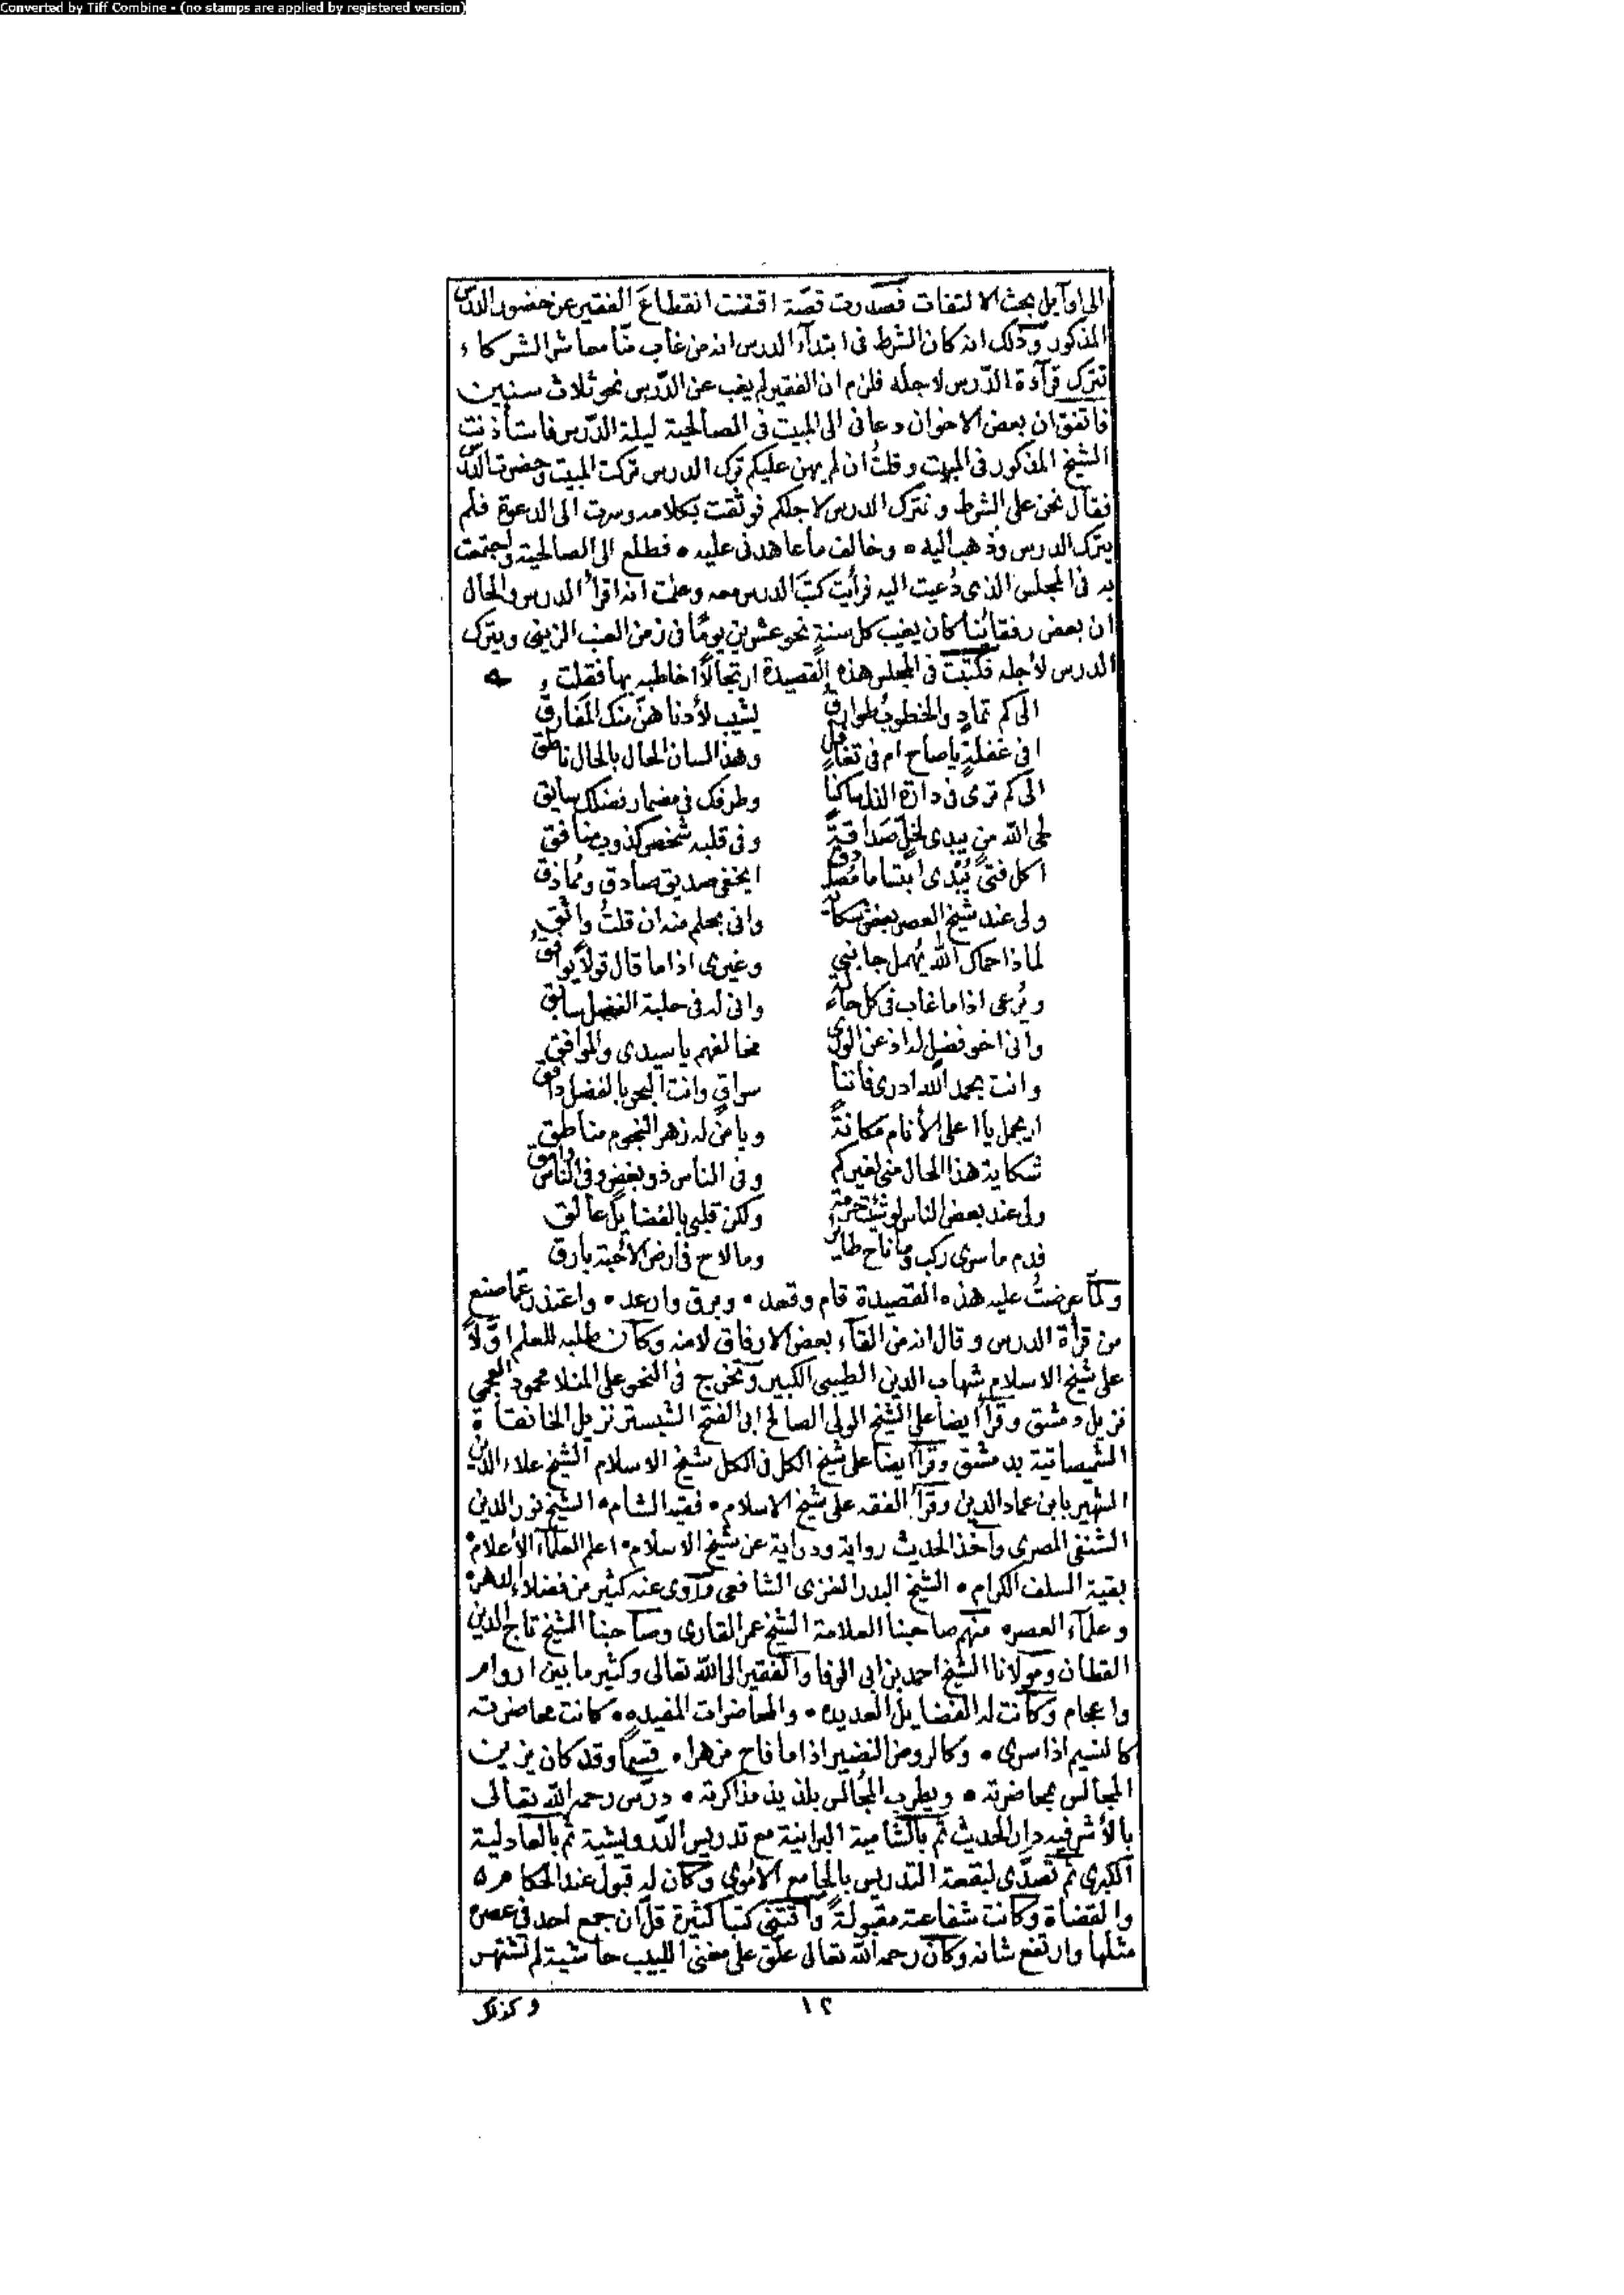 Converted by Tiff Combine - (no stamps are applied by registered version)
الى اوآيل بحث الالتفات فصدرت قصّة اقتضت انقطاعَ الفقير عن حضور الدرس
المذكور وذلك انه كان الشرط فى ابتدآء الدرس انه من غاب منّا معاشر الشركاء
تترك قرآءة الدّرس لاجله فلزم ان الفقير لم يغب عن الدّرس نحو ثلاث سنين
فاتفق ان بعض الاخوان دعانى الى المبيت فى الصالحية ليلة الدّرس فاستأذنت
الشيخ المذكور فى المبيت وقلتُ ان لم يهن عليكم ترك الدرس تركت المبيت وحضرت الدرس
فقال نحن على الشرط ونترك الدرس لاجلكم فوثقت بكلامه وسرت الى الدعوة فلم
يترك الدرس وذهب اليه • وخالف ما عاهدنى عليه • فطلع الى الصالحية واجتمعت
به فى المجلس الذى دُعيت اليه فرأيت كتب الدرس معه وعلمت انه اقرأ الدرس والحال
ان بعض رفقائنا كان يغيب كل سنة نحو عشرين يومًا فى زمن العنب الزينى ويترك
الدرس لأجله فكتبت فى المجلس هذه القصيدة ارتجالًا اخاطبه بها فقلت
الى كم تمادٍ والخطوب طوارق يشيب لأدناهنّ منك المفارق
افى غفلةٍ يا صاح ام فى تغافل وهذا لسان الحال بالحال ناطق
الى كم ترى فى دارة الذل ساكنًا وطرفك فى مضمار فضلك سابق
لحى الله من يبدى لخلّ صداقةً وفى قلبه شخص كذوب منافق
اكل فتى يُبْدى ابتسامًا مُصادق ايخفى صديق صادق ومُماذق
ولى عند شيخ العصر بعض شكاية وانى بحلم منه ان قلتُ واثق
لماذا حماك الله يُهمل جانبى وغيرى اذا ما قال قولًا يوافق
ويُرعى اذا ما غاب فى كل حالة وانى له فى حلبة الفضل سابق
وانى اخو فضل لداذ عن الورى مخالفهم يا سيدى والموافق
وانت بحمد الله ادرى فاننا سواقٍ وانت البحر بالفضل دافق
ايجمل يا اعلى الأنام مكانةً ويا من له زهر النجوم مناطق
شكاية هذا الحال منى لغيركم وفى الناس ذو بغض وفى الناس وامق
ولى عند بعض الناس لو شئت حرمة ولكن قلبى بالفضايل عالق
فدم ما سرى ركب وما ناح طاير وما لاح فى ارض الأحبة بارق
ولمّا عرضتُ عليه هذه القصيدة قام وقعد • وبرق وارعد • واعتذر عمّا صنع
من قرأة الدرس وقال انه من القآء بعض الارفاق لامنه وكان طلبه للعلم اوّلًا
على شيخ الاسلام شهاب الدين الطيبى الكبير وتخرج فى النحو على المنلا محمود العجمى
نزيل دمشق وقرأ ايضا على الشيخ الولى الصالح ابى الفتح الشبسترى نزيل الخانقاة
الشميصاتية بدمشق وقرأ ايضا على شيخ الكل فى الكل شيخ الاسلام الشيخ علاء الدين
الشهير بابن عماد الدين وقرأ الفقه على شيخ الاسلام • فقيه الشام • الشيخ نور الدين
الشنفى المصرى وأخذ الحديث رواية ودراية عن شيخ الاسلام • اعلم العلمآء الأعلام •
بقية السلف الكرام • الشيخ البدر الغزى الشافعى وروى عنه كثير من فضلاء الدهر •
وعلمآء العصر • منهم صاحبنا العلامة الشيخ عمر القارى وصاحبنا الشيخ تاج الدين
القطان ومولانا الشيخ احمد بن ابى الوفا والفقير الى الله تعالى وكثير ما بين اروام
واعجام وكانت له الفضايل العديده • والمحاضرات المفيده • كانت محاضرته
كالنسيم اذا سرى • وكالروض النضير اذا ما فاح مزهرا • قسمًا وقد كان يزين
المجالس بمحاضرته • ويطرب المُجالس بلذيذ مذاكرته • درّس رحمه الله تعالى
بالأشرفيه دار الحديث ثم بالشامية البرانية مع تدريس الدّرويشية ثم بالعادلية
الكبرى ثم تصدّى لبقعة التدريس بالجامع الأموى وكان له قبول عند الحكام
والقضاة وكانت شفاعته مقبولةً واقتنى كتبًا كثيرة قلّ ان جمع احد فى عصره
مثلها وارتفع شانه وكان رحمه الله تعالى علّق على مغنى اللبيب حاشية لم تشتهر
١٢
وكذلك